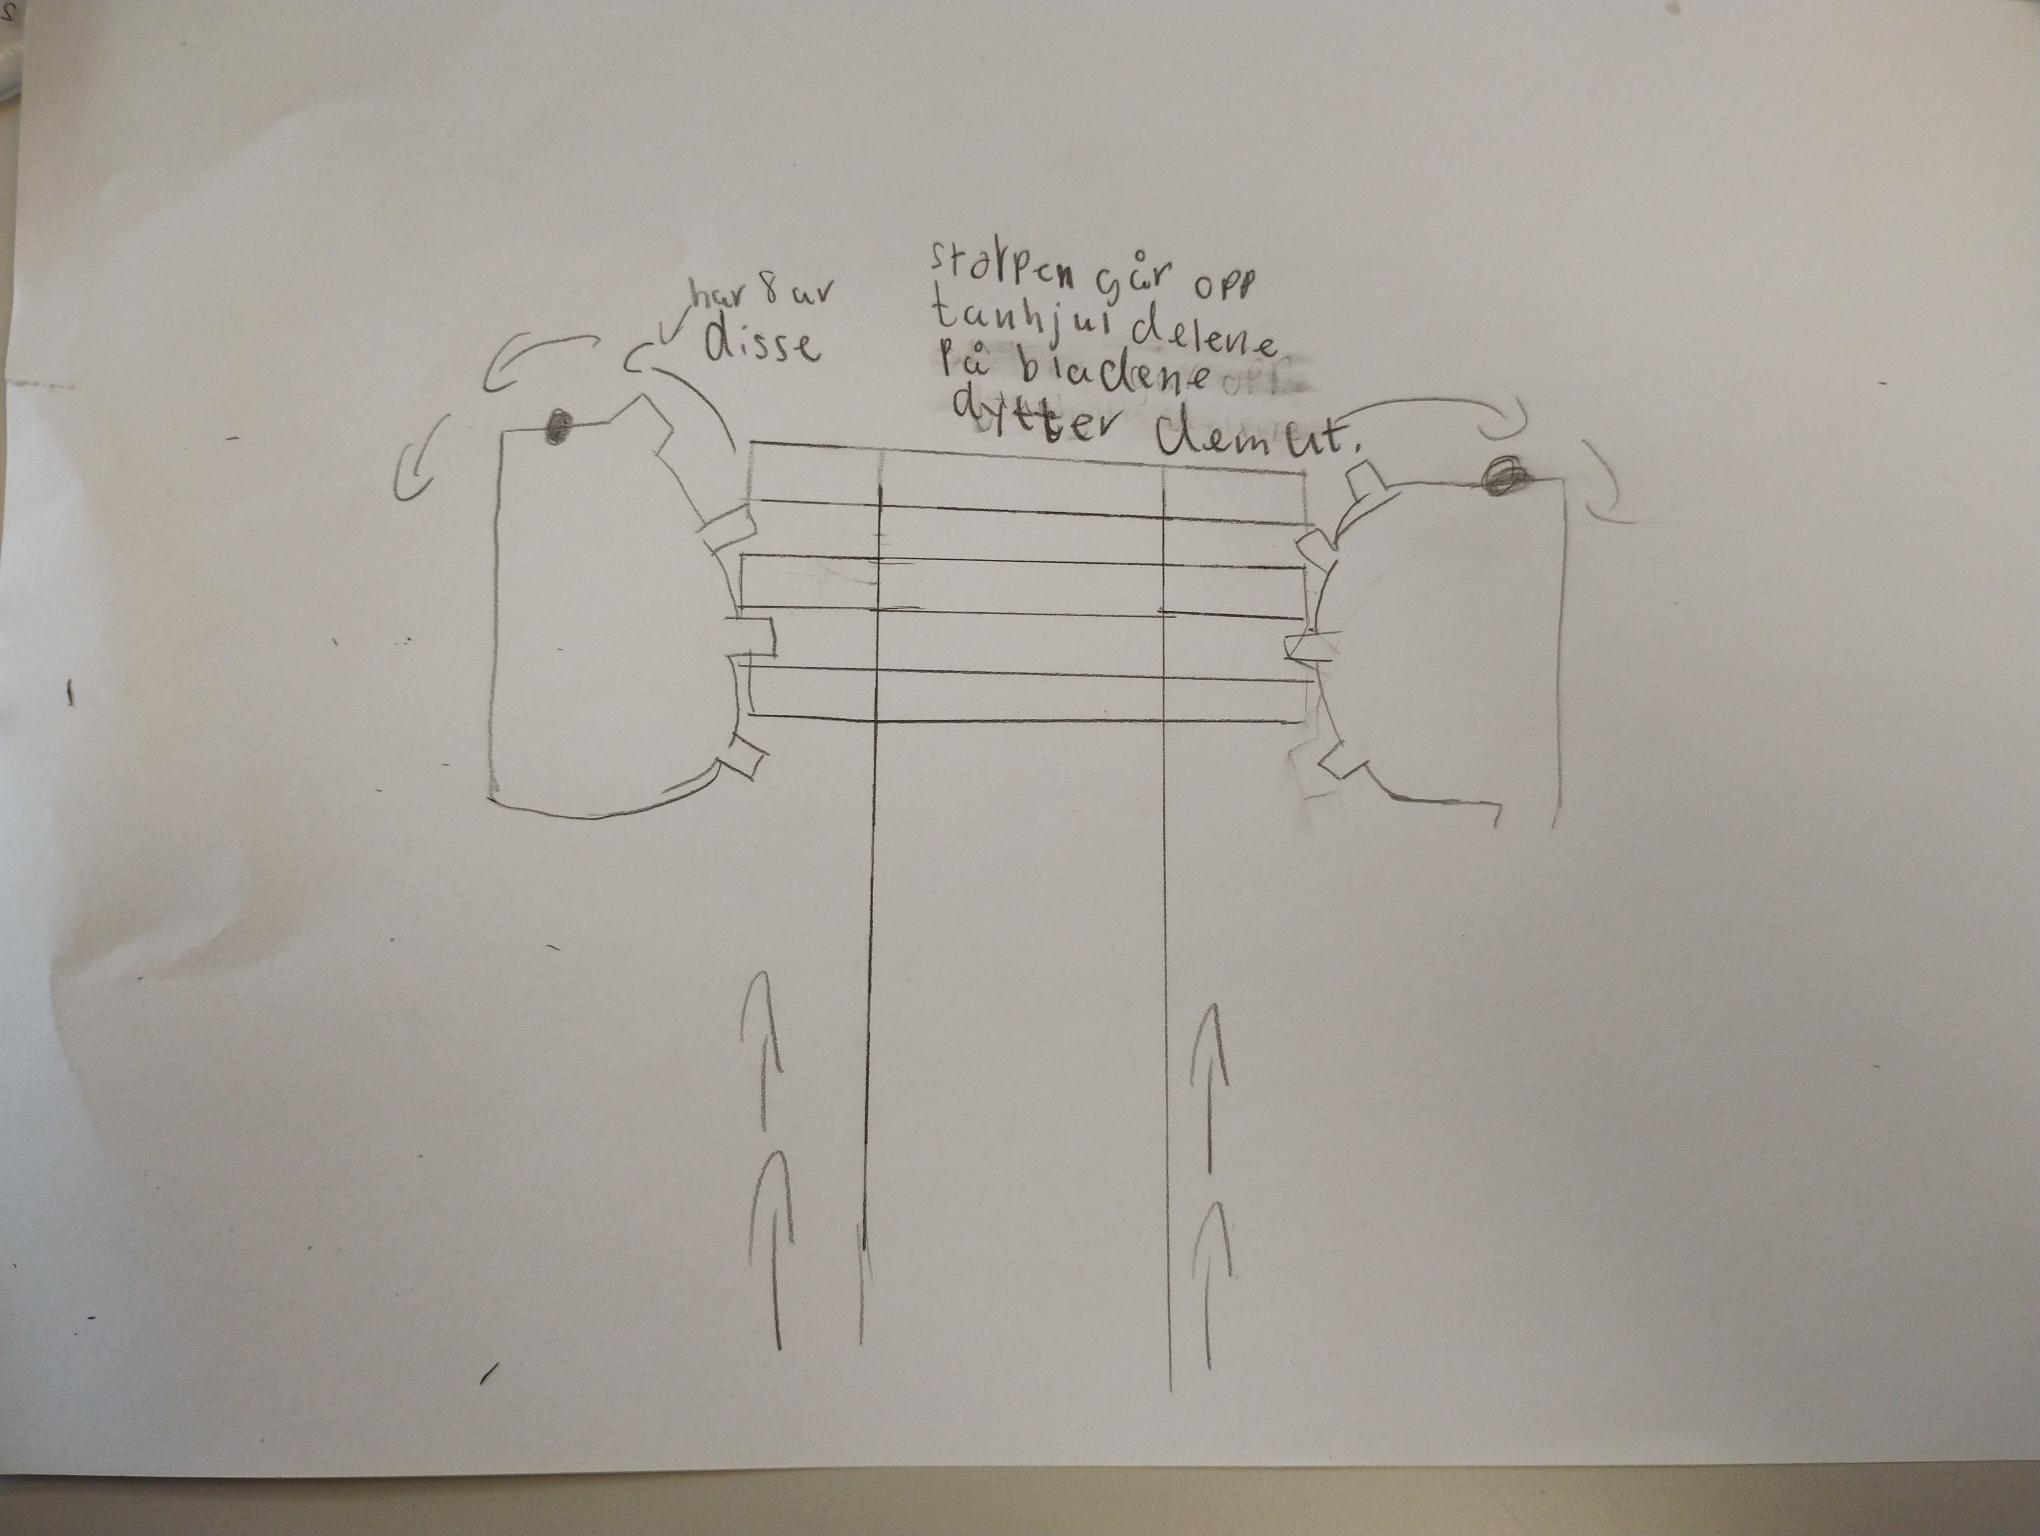 har 8 av
disse
stolpen går opp
tanhjul delene
På bladene
dytter dem ut.